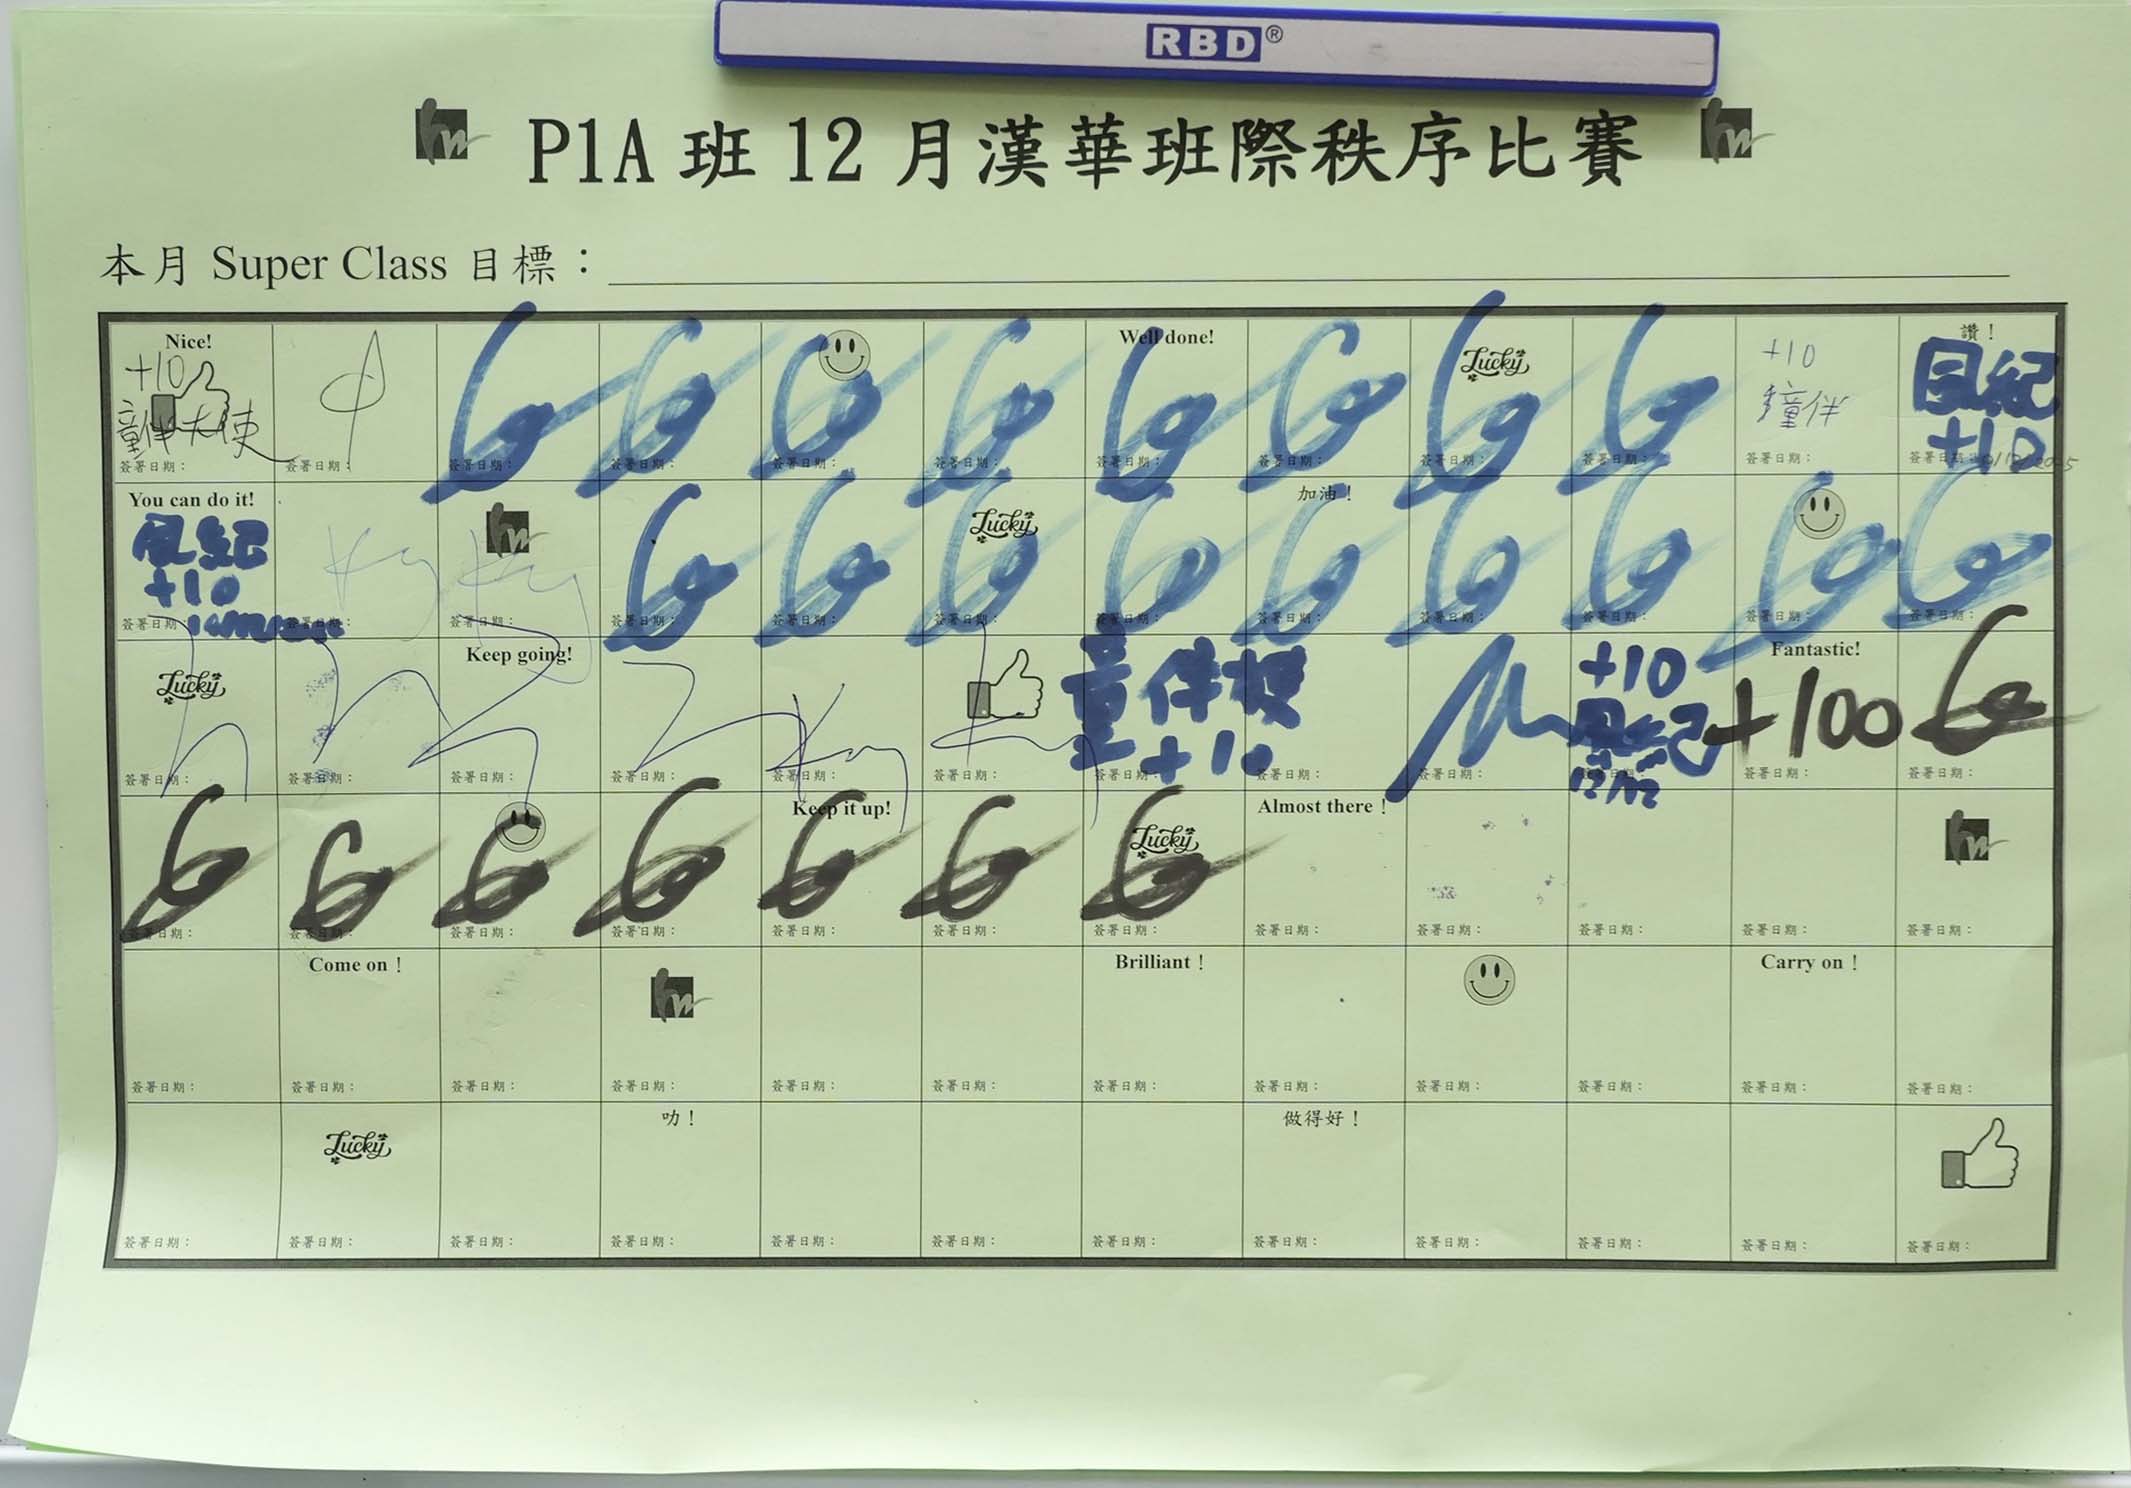 RBD®
P1A 班 12 月漢華班際秩序比賽
本月 Super Class 目標：
Nice! Well done! Lucky 讚！
+10 +10 風紀
童伴大使 童伴 +10
簽署日期： 簽署日期： 簽署日期： 簽署日期： 簽署日期： 簽署日期： 簽署日期： 簽署日期： 簽署日期： 簽署日期： 簽署日期： 簽署日期：
You can do it! Lucky 加油！
風紀
+10
簽署日期： 簽署日期： 簽署日期： 簽署日期： 簽署日期： 簽署日期： 簽署日期： 簽署日期： 簽署日期： 簽署日期： 簽署日期： 簽署日期：
Lucky Keep going! 童伴 +10 Fantastic!
+10 風紀 +100
簽署日期： 簽署日期： 簽署日期： 簽署日期： 簽署日期： 簽署日期： 簽署日期： 簽署日期： 簽署日期： 簽署日期： 簽署日期：
Keep it up! Lucky Almost there！
簽署日期： 簽署日期： 簽署日期： 簽署日期： 簽署日期： 簽署日期： 簽署日期： 簽署日期： 簽署日期： 簽署日期： 簽署日期： 簽署日期：
Come on！ Brilliant！ Carry on！
簽署日期： 簽署日期： 簽署日期： 簽署日期： 簽署日期： 簽署日期： 簽署日期： 簽署日期： 簽署日期： 簽署日期： 簽署日期： 簽署日期：
Lucky 叻！ 做得好！
簽署日期： 簽署日期： 簽署日期： 簽署日期： 簽署日期： 簽署日期： 簽署日期： 簽署日期： 簽署日期： 簽署日期： 簽署日期： 簽署日期：